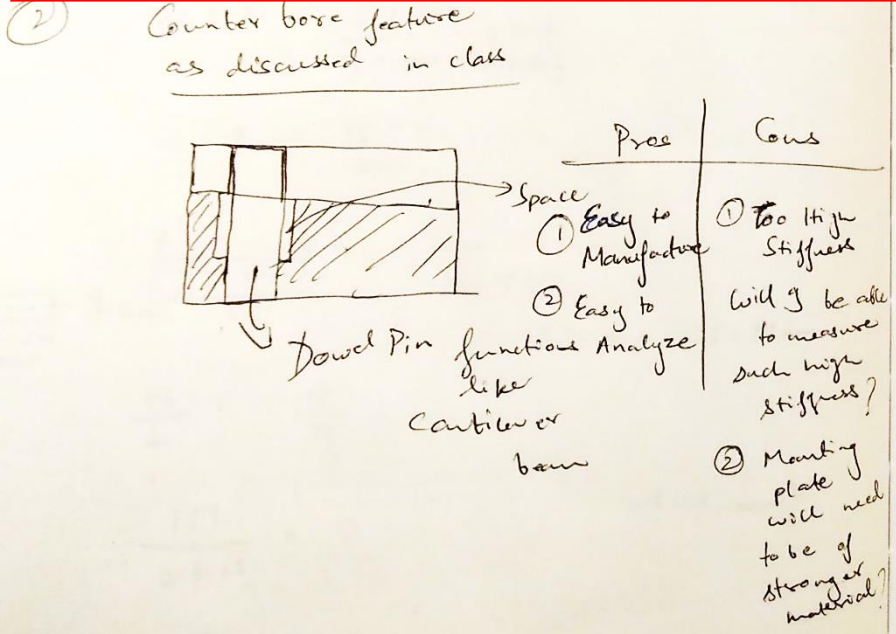 ②
Counter bore feature
as discussed in class
Space
Dowel Pin functions
like
Cantilever
beam
Pros
① Easy to
Manufacture
② Easy to
Analyze
Cons
① Too High
Stiffness
Will I be able
to measure
such high
stiffness?
② Mounting
plate
will need
to be of
stronger
material?